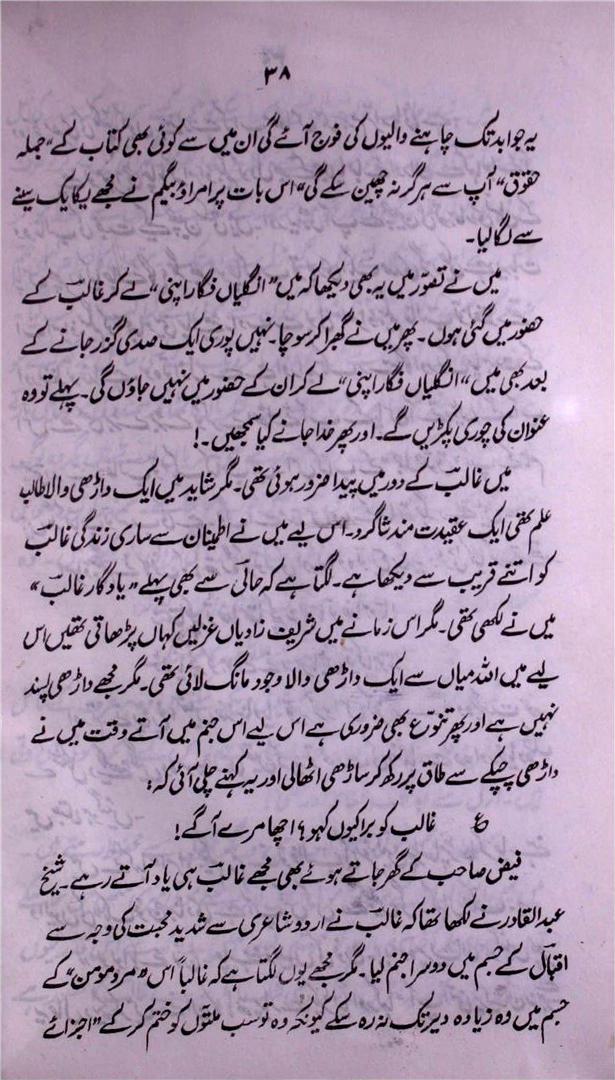 ۳۸
یہ جو ابد تک چاہنے والیوں کی فوج آئے گی ان میں سے کوئی بھی کتاب کے “جملہ
حقوق“ آپ سے ہرگز نہ چھین سکے گی“ اس بات پر امراؤ بیگم نے مجھے یکایک سینے
سے لگا لیا۔
میں نے تصوّر میں یہ بھی دیکھا کہ میں “انگلیاں فگار اپنی“ لے کر غالبؔ کے
حضور میں گئی ہوں۔ پھر میں نے گھبرا کر سوچا۔ نہیں پوری ایک صدی گزر جانے کے
بعد بھی میں “انگلیاں فگار اپنی“ لے کر ان کے حضور میں نہیں جاؤں گی۔ پہلے تو وہ
عنوان کی چوری پکڑیں گے۔ اور پھر خدا جانے کیا سمجھیں۔!
میں غالبؔ کے دور میں پیدا ضرور ہوئی تھی۔ مگر شاید میں ایک داڑھی والا طالب
علم تھی ایک عقیدت مند شاگرد۔ اس لیے میں نے اطمینان سے ساری زندگی غالبؔ
کو اتنے قریب سے دیکھا ہے۔ لگتا ہے کہ حالیؔ سے بھی پہلے “یادگار غالبؔ“
میں نے لکھی تھی۔ مگر اس زمانے میں شریف زادیاں غزلیں کہاں پڑھاتی تھیں اس
لیے میں اللہ میاں سے ایک داڑھی والا وجود مانگ لائی تھی۔ مگر مجھے داڑھی پسند
نہیں ہے اور پھر تنوّع بھی ضروری ہے اس لیے اس جنم میں آتے وقت میں نے
داڑھی چپکے سے طاق پر رکھ کر ساڑھی اٹھالی اور یہ کہنے چلی آئی کہ:
ع غالب کو برا کیوں کہو؟ اچھا مرے آگے!
فیض صاحب کے گھر جاتے ہوئے بھی مجھے غالبؔ ہی یاد آتے رہے۔ شیخ
عبدالقادر نے لکھا تھا کہ غالبؔ نے اردو شاعری سے شدید محبت کی وجہ سے
اقبالؔ کے جسم میں دوسرا جنم لیا۔ مگر مجھے یوں لگتا ہے کہ غالباً اس “مردِ مومن“ کے
جسم میں وہ زیادہ دیر تک نہ رہ سکے کیونکہ وہ تو سب ملتوں کو ختم کرکے “اجزائے